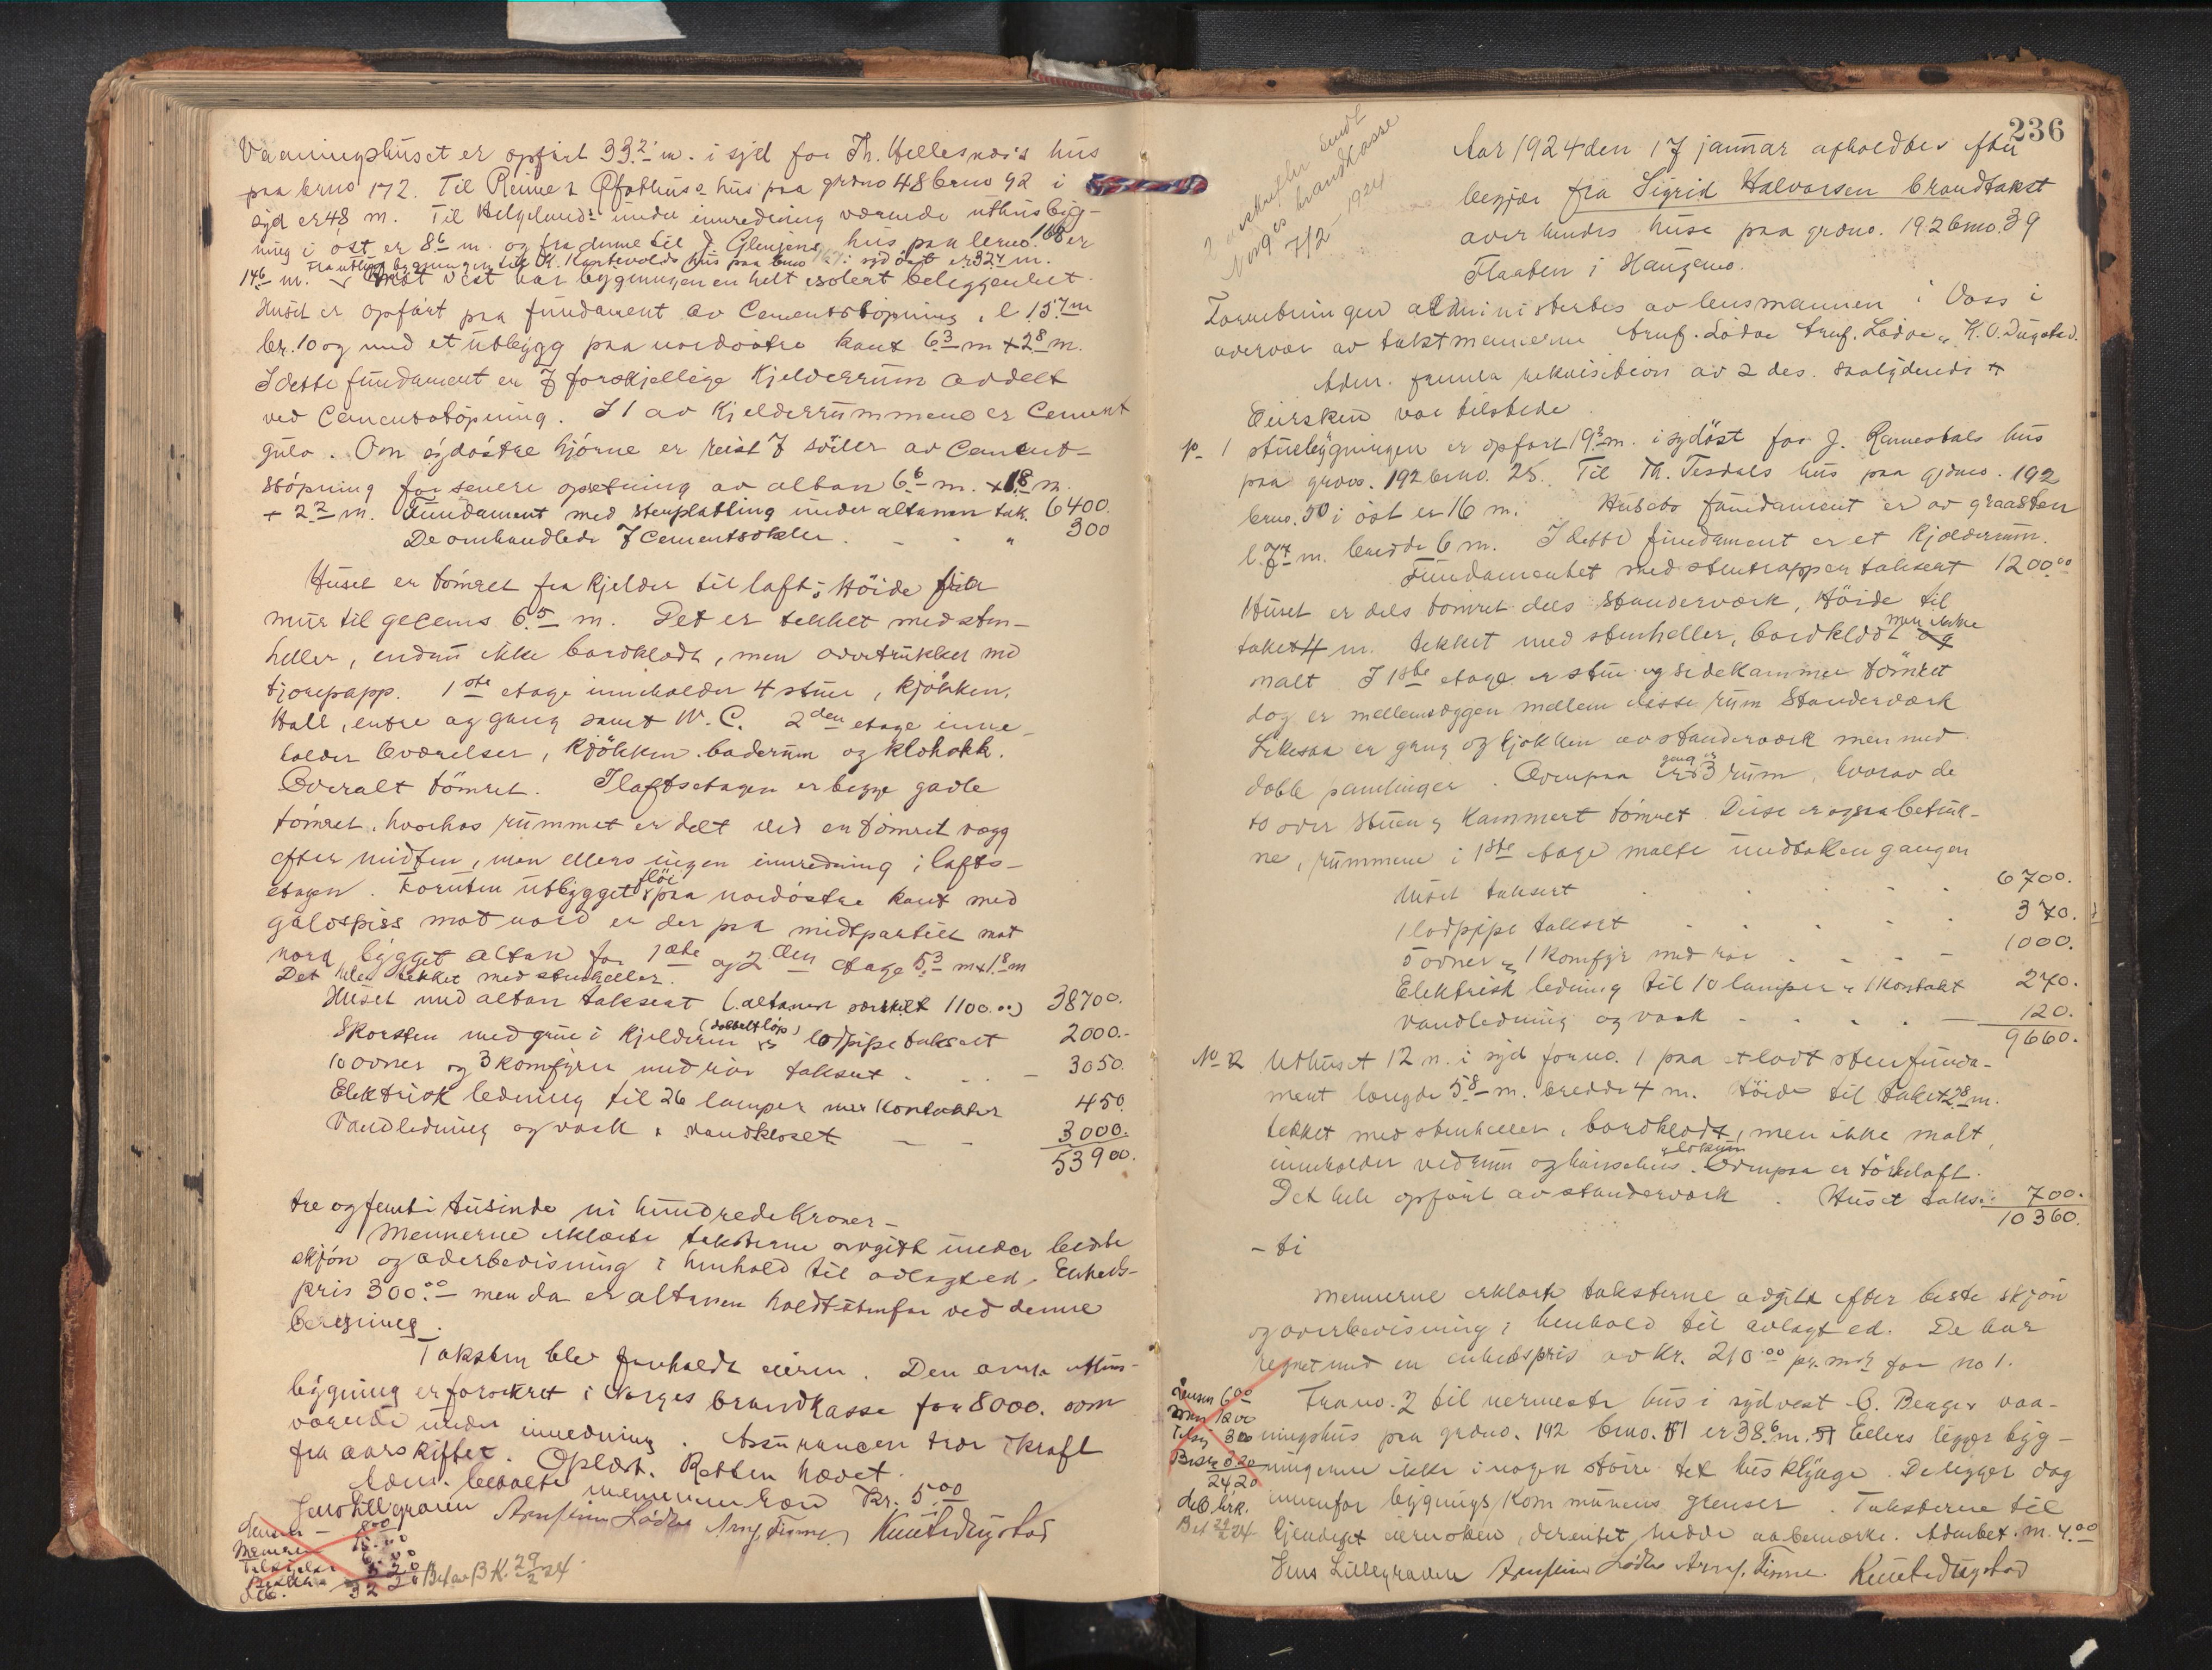 Vaaningshuset er opført 33.2 m. i syd for Th. Hellesnes's hus
paa brno 172. Til Reimer Øfsthus's hus paa grdno 48 brno 92 i
syd er 48 m. Til Helgelands under innredning værende uthusbyg-
ning i øst er 8 6 m. og fra denne til J. Glenjens hus paa brno. 168 er
14 6 m. Mot vest har bygningen en helt isolert beliggenhet.
Huset er opført paa fundament av Cementstøpning, l. 15.7 m
br. 10 og med et utbygg paa nordøstre kant 6 3 m x 2 8 m.
I dette fundament er 7 forskjellige Kjelderrum avdelt
ved Cementstøpning. I 1 av Kjelderrummene er Cement
gulv. Om sydøstre hjørne er reist 7 søiler av Cement-
støpning for senere opsetning av altan 6 6 m. x 1 8 m.
+ 2 2 m. Fundament med stenplatting under altanen tak. 6400.
De omhandlede 7 Cementsokler . - - " 300
Huset er tømret fra Kjelder til loft; Høide fra
mur til gesems 6.5 m. Det er tekket med sten-
heller, endnu ikke bordklædt, men overtrukket med
tjærepapp. 1ste etage inneholder 4 stuer, Kjøkken,
Hall, entre og gang samt W. C. 2den etage inne-
holder 6 værelser, Kjøkken baderum og klohokk.
Overalt tømret. I loftsetagen er begge gavle
tømret, hvorhos rummet er delt ved en tømret vegg
efter midten, men ellers ingen innredning i lofts-
etagen. Foruten utbygget fløi paa nordøstre kant med
gavlspiss mot nord er der paa midtpartiet mot
nord bygget altan for 1ste og 2den etage 5 3 m x 1 8 m
Det hele tekket med stenheller.
Huset med altan taksert (altanen særskilt 1100.00) 38700.
Skorsten med grue i Kjelderen (dobbeltløp) lodpipe taksert 2000.-
10 ovner og 3 komfyrer med rør taksert . . . - 3050.
Elektrisk ledning til 26 lamper mer Kontakter 450.
Vandledning og vask & vandkloset - - 3000.
53900.
tre og femti tusinde ni hundrede Kroner -
Mennerne erklærte taksterne avgit under bedste
skjøn og overbevisning i henhold til avlagt ed. Enheds-
pris 300.00 men da er altanen holdt utenfor ved denne
beregning.
Taksten blev foreholdt eieren. Den uthus-
bygning er forsikret i Norges brandkasse for 8000. som
værende under innredning. Assurancen træ i kraft
fra aarsskiftet. Oplæst. Retten hævet.
Adm. betalte mennerne Kr. 5.00
Jens Lillegraven Arnfinn Lødve Arnf. Finne Knut Dugstad
8 00
Mennene 15.00
6.00
3 20
32 20 Bet av B.K. 29/2 24.
236
2 avskrifter sendt
Norges brandkasse
7/2 - 1924
Aar 1924 den 17 januar avholdtes efter
begjær fra Sigrid Halvorsen brandtakst
over hendes huse paa grdno. 192 brno. 39
Flaaten i Haugamo.
Forretningen administertes av lensmannen i Voss i
overvær av takstmennerne Arnf. Lødve & K. O. Dugstad.
Adm. fremla rekvisition av 2 des. saalydende
Eiersken var tilstede.
1 stuebygningen er opført 19 3 m. i sydøst for J. Ramestals hus
paa grdno. 192 brno. 25. Til Th. Tesdals hus paa grdno. 192
brno. 50 i øst er 16 m. Husets fundament er av graasten
l. 7 7 m. bredde 6 m. I dette fundament er et Kjelderrum.
Fundamentet med stentrappen taksert 1200.00
Huset er dels tømret dels Standerværk, Høide til
taket 4 m. tekket med stenheller, bordklædt men ikke
malt. I 1ste etage er stue og sidekammer tømret
dog er mellemveggen mellem disse rum Standerværk
Likesaa er gang og kjøkken av standerværk men med
doble panelinger. Ovenpaa gang & 3 rum, hvorav de
to over stuen & Kammert tømret. Disse er ogsaa betruk-
ne, rummene i 1ste etage malte undtaken gangen
Huset taksert . . . . 6700.
1 lodpipe taksert . . . . 370.
5 ovner & 1 Komfyr med rør . . - - 1000.
Elektrisk ledning til 10 lamper & 1 Kontakt 270.
Vandledning og vask - . . . - 120.
9660.
No 2 Uthuset 12 m. i syd for no. 1 paa et lødt stenfunda-
ment længde 5 8 m. bredde 4 m. Høide til taket 2 8 m.
tekket med stenheller, bordklædt, men ikke malt,
inneholder vedrum og hønsehus & lokum. Ovenpaa er tørkeloft.
Det hele opført av standerværk . Huset taks: 700.
10360.
- ti
Mennerne erklærte taksterne avgit efter beste skjøn
og overbevisning i henhold til avlagt ed. De har
regnet med en enhetspris av Kr. 210.00 pr. m2 for no 1.
Fra no. 2 til nermeste hus i sydvest B. Berges vaa-
ningshus paa grdno. 192 brno. 51 er 38 6 m. Ellers ligger byg-
ningerne ikke i nogen større tet husklynge. De ligger dog
innenfor bygnings Kommunens grenser. Taksterne til
kjendegit eiersken, der intet hadde at bemerke. Adm bet. m. 4.00
Jens Lillegraven Arnfinn Lødve Arnf. Finne. Knut Dugstad
Lensm 6 00
Menn 12 00
Tilsyn 3 00
Beskr 3 20
24,20
Bet 29/2 24